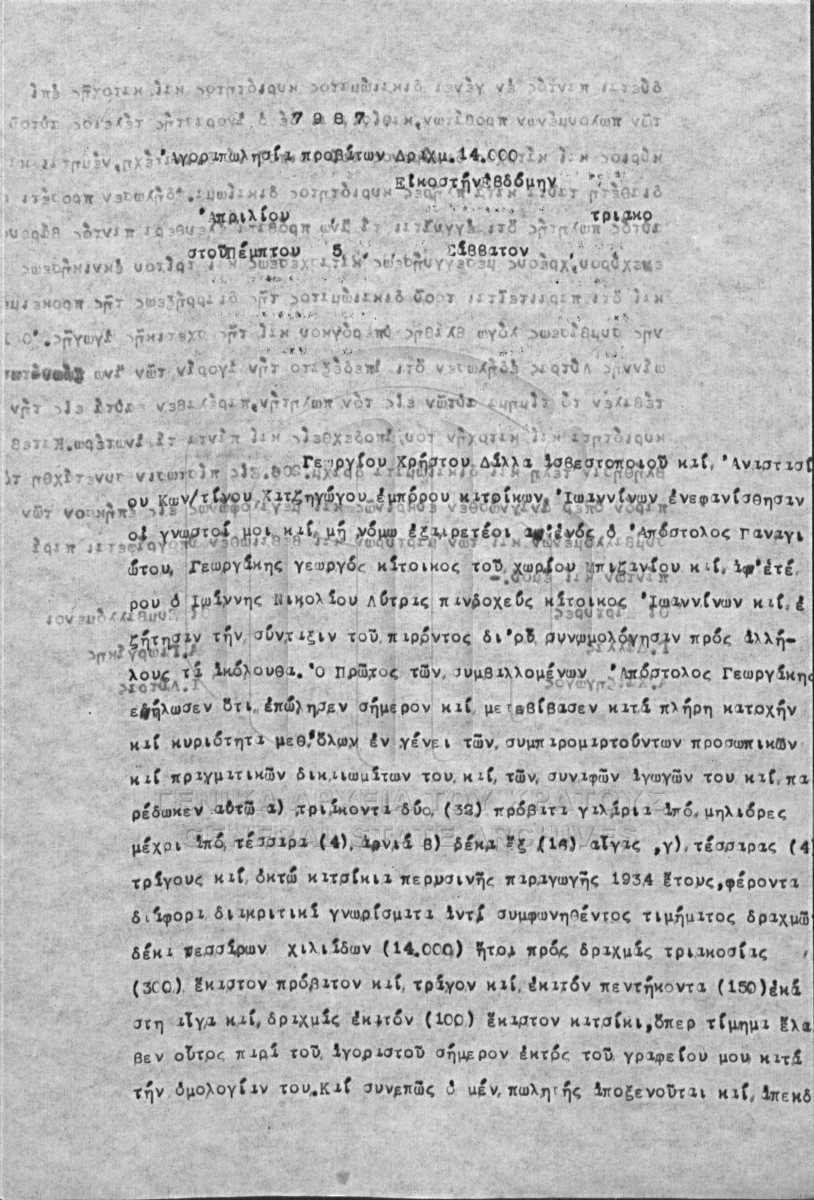 7987
Ἀγοραπωλησία προβάτων Δραχμ.14.000
Εἰκοστήν Ἑβδόμην
Ἀπριλίου τριακο
στοῦ Πέμπτου 5 Σάββατον
Γεωργίου Χρήστου Δάλλα ἀσβεστοποιοῦ καί, Ἀναστασί
ου Κων/τίνου Χατζηγώγου ἐμπόρου κατοίκων, Ἰωαννίνων ἐνεφανίσθησαν
οἱ γνωστοί μοι καί, μή νόμω ἐξαιρετέοι ἀφ'ἑνός ὁ Ἀπόστολος Παναγι
ώτου, Γεωργάκης γεωργός κάτοικος τοῦ χωρίου Μπιζανίου καί, ἀφ'ἑτέ
ρου ὁ Ἰωάννης Νικολάου Λύτρας πανδοχεύς κάτοικος Ἰωαννίνων καί, ἐ
ζήτησαν τήν, σύνταξιν τοῦ παρόντος δι'οὗ συνωμολόγησαν πρός ἀλλή-
λους τά ἀκόλουθα. Ὁ Πρῶτος τῶν, συμβαλλομένων Ἀπόστολος Γεωργάκης
ἐδήλωσεν ὅτι, ἐπώλησεν σήμερον καί, μεταβίβασεν κατά πλήρη κατοχήν
καί κυριότητα μεθ'ὅλων ἐν γένει τῶν, συμπαρομαρτούντων προσωπικῶν
καί πραγματικῶν δικαιωμάτων του, καί, τῶν, συναφῶν ἀγωγῶν του, καί, πα
ρέδωκεν αὐτῶ α), τριάκοντα δύο, (32) πρόβατα γαλάρια ἀπό, μηλιόρες
μέχρι ἀπό, τέσσαρα (4), ἀρνιά β) δέκα ἕξ (16) αἶγας ,γ), τέσσαρας (4)
τράγους καί, ὀκτώ κατσίκια περυσινῆς παραγωγῆς 1934 ἔτους,φέροντα
διάφορα διακριτικά γνωρίσματα ἀντί συμφωνηθέντος τιμήματος δραχμῶν
δέκα τεσσάρων χιλιάδων (14.000) ἤτοι πρός δραχμάς τριακοσίας
(300) ἕκαστον πρόβατον καί, τράγον καί, ἑκατόν πεντήκοντα (150) ἑκά
στη αἶγα καί, δραχμάς ἑκατόν (100) ἕκαστον κατσίκι,ὅπερ τίμημα ἔλα
βεν οὗτος παρά τοῦ, ἀγοραστοῦ σήμερον ἐκτός τοῦ γραφείου μου, κατά
τήν ὁμολογίαν του. Καί συνεπῶς ὁ μέν, πωλητής ἀποξενοῦται καί, ἀπεκδ
ΓΕΝΙΚΑ ΑΡΧΕΙΑ ΤΟΥ ΚΡΑΤΟΥΣ
GENERAL STATE ARCHIVES